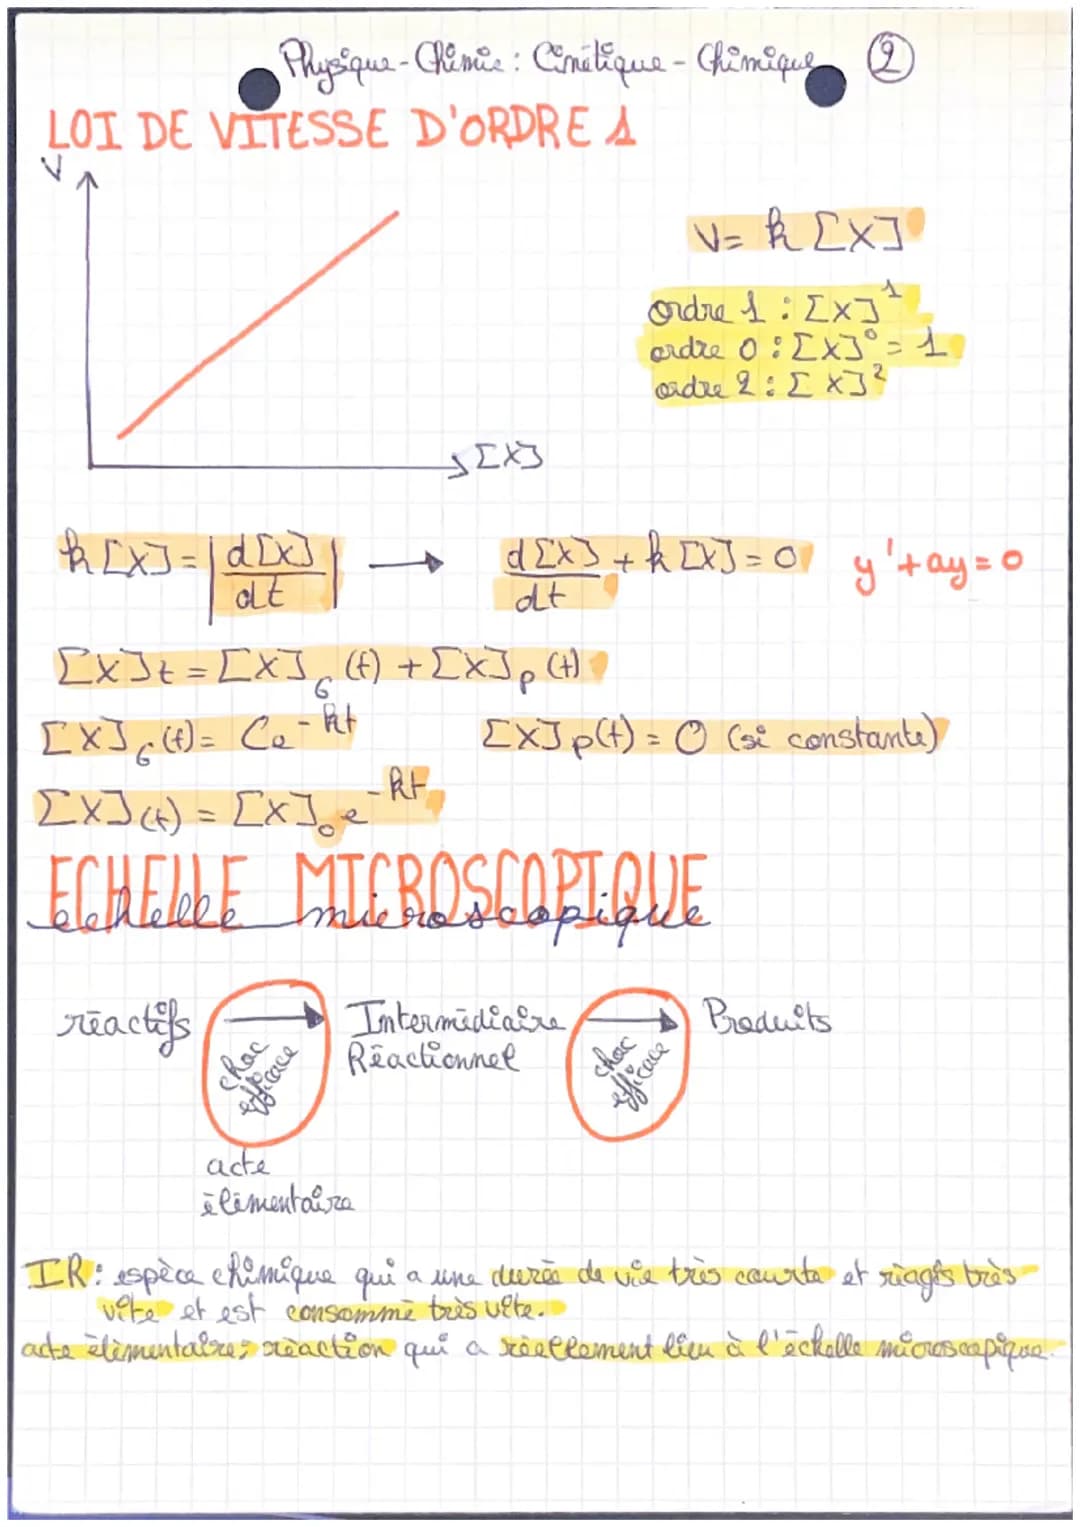 Physique-Chimie : Cinétique-Chimique ②
LOI DE VITESSE D'ORDRE 1
V
V = k [X]
ordre 1 : [X]¹
ordre 0 : [X]⁰ = 1
ordre 2 : [X]²
[X]
k [X] = | d[X] / dt | → d[X] / dt + k [X] = 0 y' + ay = 0
[X]t = [X]G (t) + [X]p (t)
[X]G (t) = Ce^-kt [X]p(t) = 0 (si constante)
[X](t) = [X]₀ e^-kt
ECHELLE MICROSCOPIQUE
echelle microscopique
réactifs → Intermédiaire Réactionnel → Produits
choc efficace
choc efficace
acte
élémentaire
IR : espèce chimique qui a une durée de vie très courte et réagis très
vite et est consommé très vite.
acte élémentaire : réaction qui a réellement lieu à l'échelle microscopique.